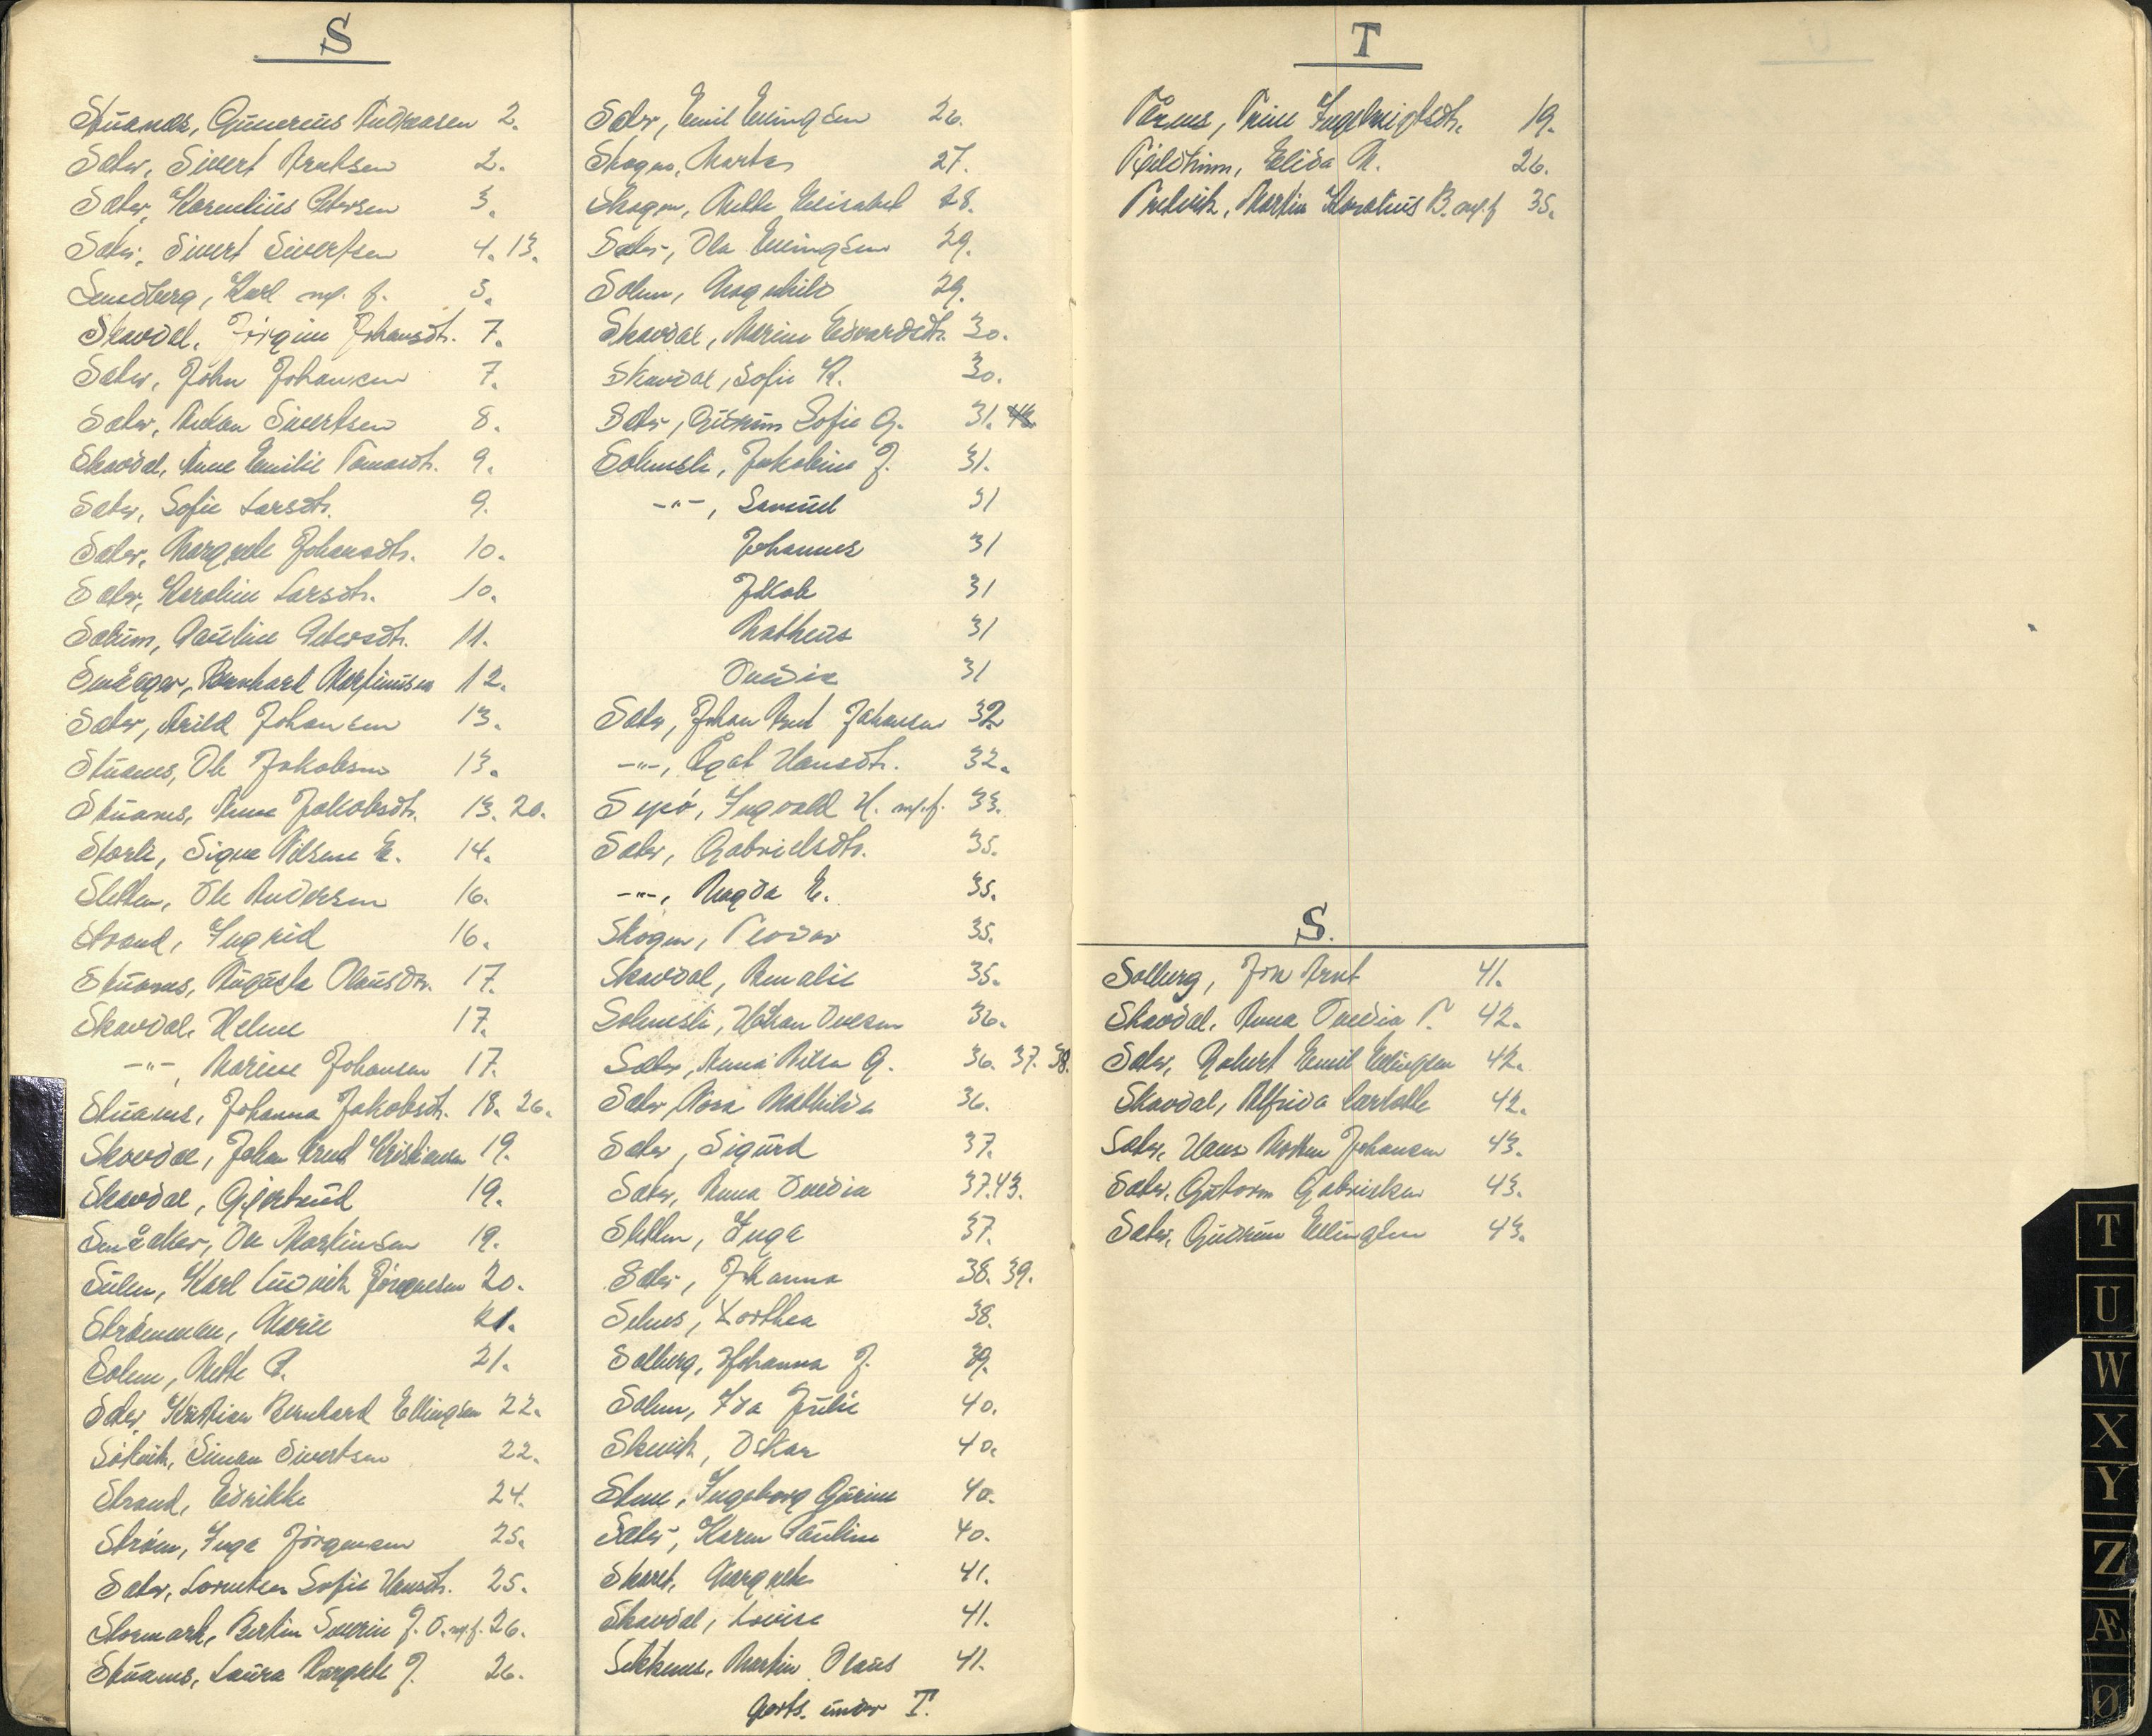 S
Stuanes, Gunerius Andreasen 2.
Sæter, Sivert Arntsen 2.
Sæter, Kornelius Petersen 3.
Sæter, Sivert Sivertsen 4. 13.
Sundberg, Karl mf. f. 5.
Skavdal, Jørgine Johansdt. 7.
Sæter, John Johansen 7.
Sæter, Håkon Sivertsen 8.
Skavdal, Anne Emilie Tomasdt. 9.
Sæter, Sofie Larsdt. 9.
Sæter, Margrete Johansdt. 10.
Sæter, Karoline Larsdt. 10.
Solum, Pauline Petersdt. 11.
Småager, Bernhard Martinusen 12.
Sæter, Arild Johansen 13.
Stuanes, Ole Jakobsen 13.
Stuanes, Anne Jakobsdt. 13. 20.
Storli, Signe Nilsine E. 14.
Sletten, Ole Andersen 16.
Strand, Ingrid 16.
Stuanes, Augusta Olausdtr. 17.
Skavdal, Helene 17.
-"-, Marius Johansen 17.
Stuanes, Johanna Jakobsdt. 18. 26.
Skavdal, Johan Arnt Kristiansen 19.
Skavdal, Gjertrud 19.
Småaker, Ole Martinsen 19.
Sulen, Karl Ludvik Jørgensen 20.
Strømman, Marie 21.
Solem, Mette P. 21.
Sæter, Kristian Bernhard Ellingsen 22.
Søtvik, Simon Sivertsen 22.
Strand, Edrikke 24.
Strøm, Inga Jørgensen 25.
Sæter, Lorentse Sofie Hansdt. 25.
Stormark, Bertin Severin J. O. mf. f. 26.
Stuanes, Laura Margrete J. 26.
Sæter, Emil Ellingsen 26.
Skogen, Marta 27.
Skogen, Mette Elisabet 28.
Sæter, Ola Ellingsen 29.
Solem, Magnhild 29.
Skavdal, Marine Edvardsdt. 30.
Skavdal, Sofie K. 30.
Sæter, Gudrun Sofie G. 31. 43.
Solemsli, Jakobine J. 31.
-"-, Samuel 31
Johannes 31
Jakob 31
Matheus 31
Ovedia 31
Sæter, Johan Arnt Johansen 32
-"-, Ågat Hansdt. 32.
Sysø, Ingvald H. mf. f. 33.
Sæter, Gabrielsdt. 35.
-"-, Magda E. 35.
Skogen, Teodor 35.
Skavdal, Amalie 35.
Solemsli, Håkon Ovesen 36.
Sæter, Anna Nilsa G. 36. 37. 38.
Sæter, Nora Mathilde 36.
Sæter, Sigurd 37.
Sæter, Anna Ovedia 37. 43.
Sletten, Inga 37.
Sæter, Johanna 38. 39.
Selnes, Dorthea 38.
Solberg, Johanna J. 39.
Solem, Ida Julie 40.
Skeivik, Oskar 40.
Stene, Ingeborg Gurine 40.
Sæter, Karen Pauline 40.
Skaret, Margrete 41.
Skavdal, Lovise 41.
Settenes, Martin Olaus 41.
Forts. under T.
T
Tårnes, Trine Ingebrigtsdt. 19.
Tjeldtrøm, Elida M. 26.
Trelvik, Martin Koralius B. mf. f. 35.
S.
Solberg, Jon Arnt 41.
Skavdal, Anna Ovedia T. 42.
Sæter, Robert Emil Ellingsen 42.
Skavdal, Alfrida Charlotte 42.
Sæter, Hans Morten Johansen 43.
Sæter, Gutorm Gabrielsen 43.
Sæter, Gudrun Ellingsen 43.
T
U
W
X
Y
Z
Æ
Ø